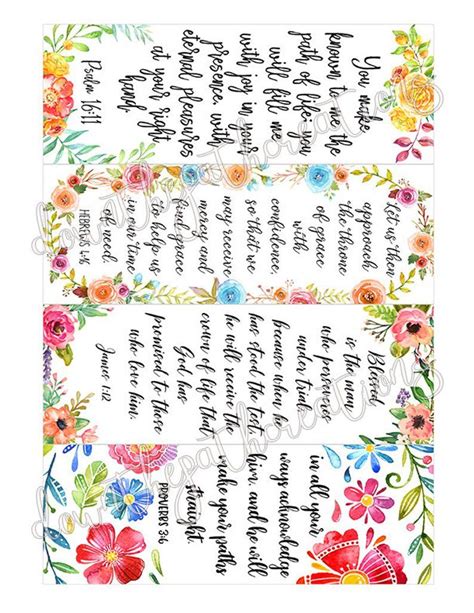 You make
known to me the
path of life; you
will fill me
with joy in your
presence, with
eternal pleasures
at your right
hand.
Psalm 16:11
Let us then
approach
the throne
of grace
with
confidence,
so that we
may receive
mercy and
find grace
to help us
in our time
of need.
HEBREWS 4:16
Blessed
is the man
who perseveres
under trial,
because when he
has stood the test,
he will receive the
crown of life that
God has
promised to those
who love him.
James 1:12
in all your
ways acknowledge
him, and he will
make your paths
straight.
PROVERBS 3:6